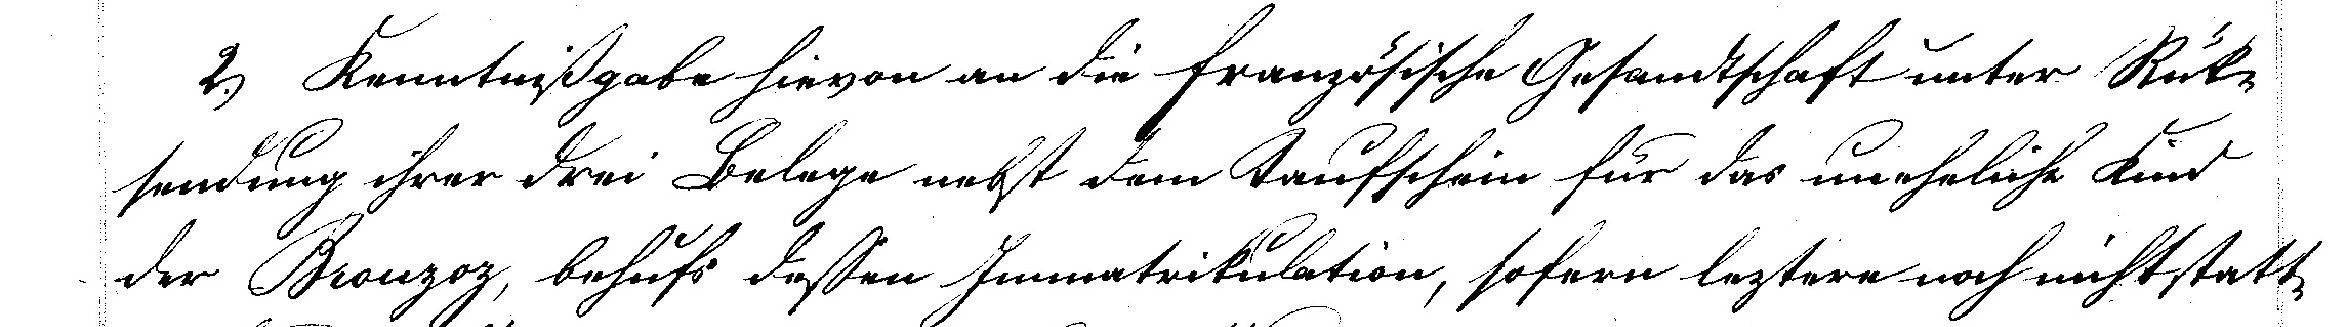 2.) Kenntnißgabe hievon an die französische Gesandtschaft unter Rük-
sendung ihrer drei Belege nebst dem Taufschein für das uneheliche Kind
der , behufs dessen Immatrikulation, sofern leztere noch nicht statt-